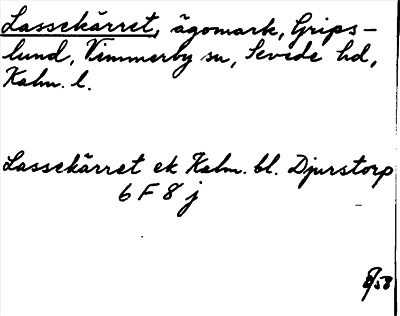 Lassekärret, ägomark, Grips-
lund, Vimmerby sn, Sevede hd,
Kalm. l.
Lassekärret ek Kalm. bl. Djurstorp
6 F 8 j
8/58